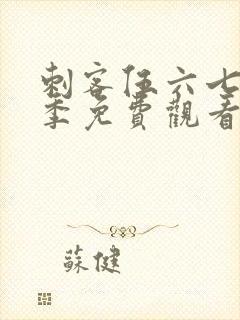 刺客伍六七
季免費觀看
蘇健